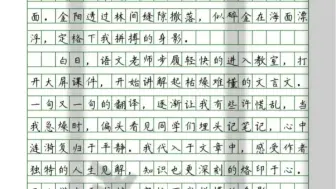 面。金阳透过林间缝隙撒落，似鲜金在海面漂
浮，定格下我拼搏的身影。
白日，语文老师步履轻快的进入教室，打
开大屏课件，开始讲解起枯燥难懂的文言文。
一句又一句的翻译，逐渐让我有些许慌乱，当
我急燥时，偏头看见同学们埋头记笔记，心中
涟漪复归于平静。我代入于文章中，感受作者
独特的人生见解，知识也更深刻的烙印于心。